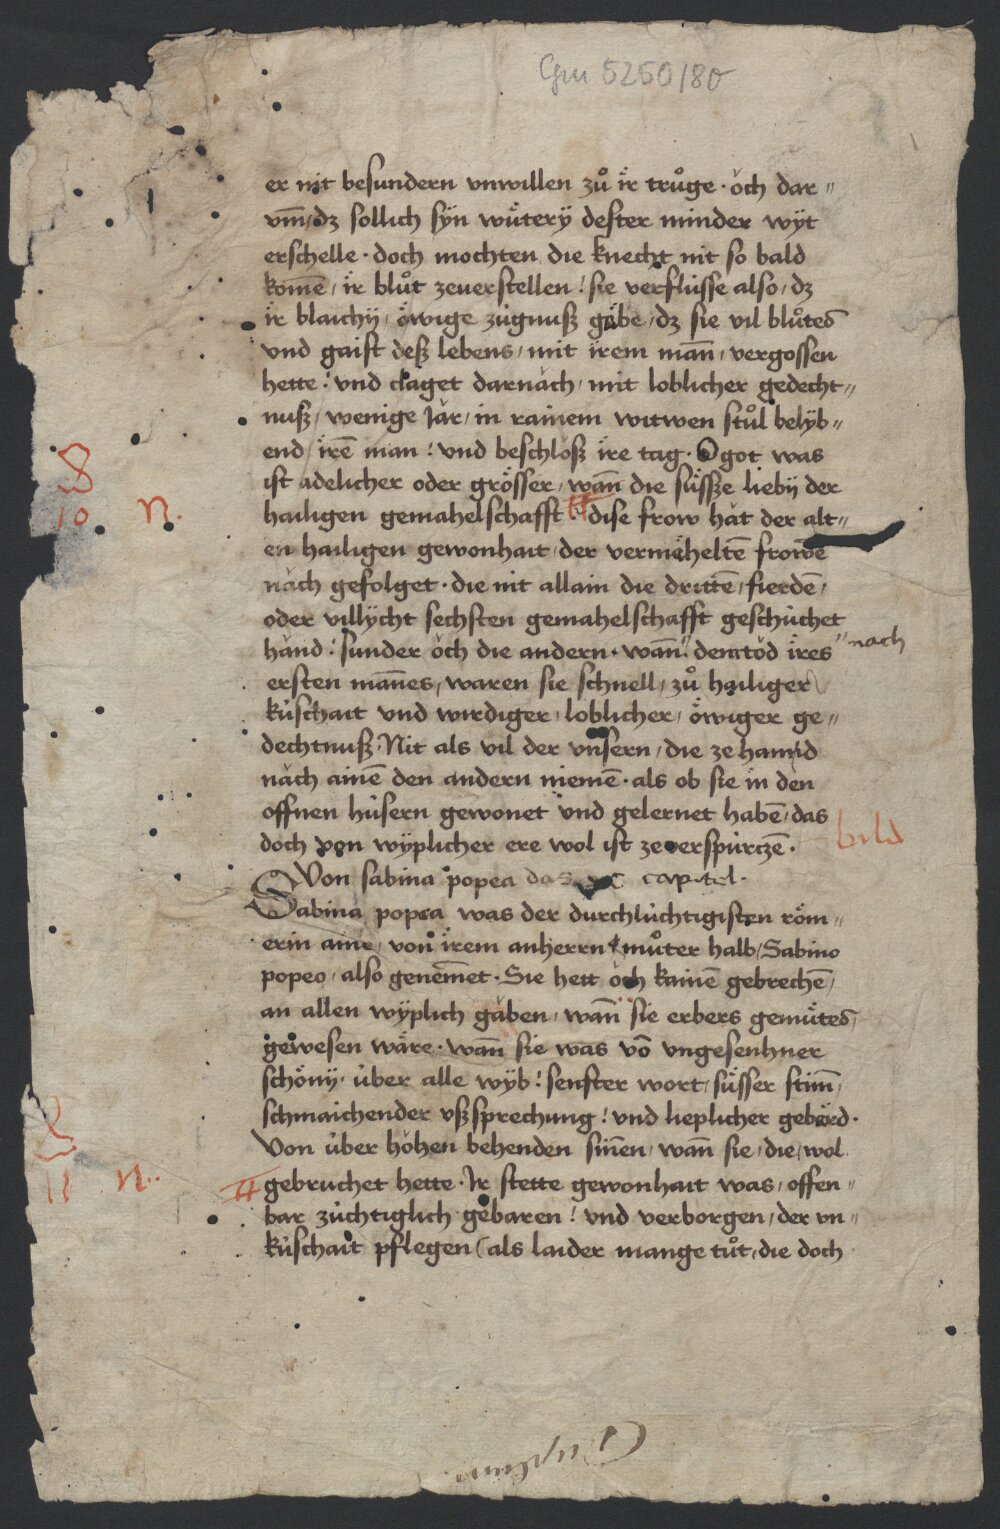 Cgm 5250/80
er nit besundern vnwillen zuͦ ir truͦge · och dar〃
vm̄/ dz sollich syn wuͤtery dester minder wyt
erschelle · doch mochten die knecht nit so bald
komē / ir bluͦt zeuerstellen ! sie verflússe also / dz
ir blaichy / oͤwige zúgnuß gaͤbe / dz sie vil bluͦtes
vnd gaist deß lebens / mit irem man̄ / vergossen
hette ! vnd claget darnăch / mit loblicher gedecht〃
nuß / wenige Jăr / in rainem witwen stuͦl belyb〃
end / irē man ! vnd beschloß ire tag · O got was
ist adelicher oder groͤsser / wan̄ die suͤsse lieby der
hailigen gemahelschafft · dise frow hăt der alt〃
en hailigen gewonhait / der vermaͤheltē frowē
năch gefolget · die nit allain die drittē / fierdē /
oder villycht sechsten gemahelschafft geschúchet
hănd ! sunder och die andern · wan̄ 〃 dem tod ires 〃 nach
ersten man̄es / waren sie schnell / zuͦ hailiger
kúschait vnd wirdiger / loblicher / oͤwiger ge〃
dechtnuß · Nit als vil der vnsern / die ze hannd
năch ainē den andern niemē · als ob sie in den
offnen húsern gewonet vnd gelernet habē / das
doch von wyplicher ere wol ist zeuerspúrczē ·
bild
Von sabina popea das capitel ·
Sabina popea was der durchlúchtigisten roͤm〃
erin aine / von irem anherrn muͦter halb / Sabino
popeo / also genem̄et · Sie hett och kainē gebrechē /
an allen wyplich găben / wan̄ sie erbers gemuͤtes /
gewesen waͤre · wan̄ sie was vō vngesenhner
schoͤny · úber alle wyb ! senfter wort / suͤsser stim̄ /
schmaichender vßsprechung ! vnd lieplicher gebaͤrd ·
Von úber hohen behenden sin̄en / wan̄ sie / die / wol
gebruchet hette · Ir stette gewonhait was / offen〃
bar zúchtiglich gebaren ! vnd verborgen / der vn〃
kúschait pflegen ( als laider mange tuͦt / die doch
10 n.
11 n..